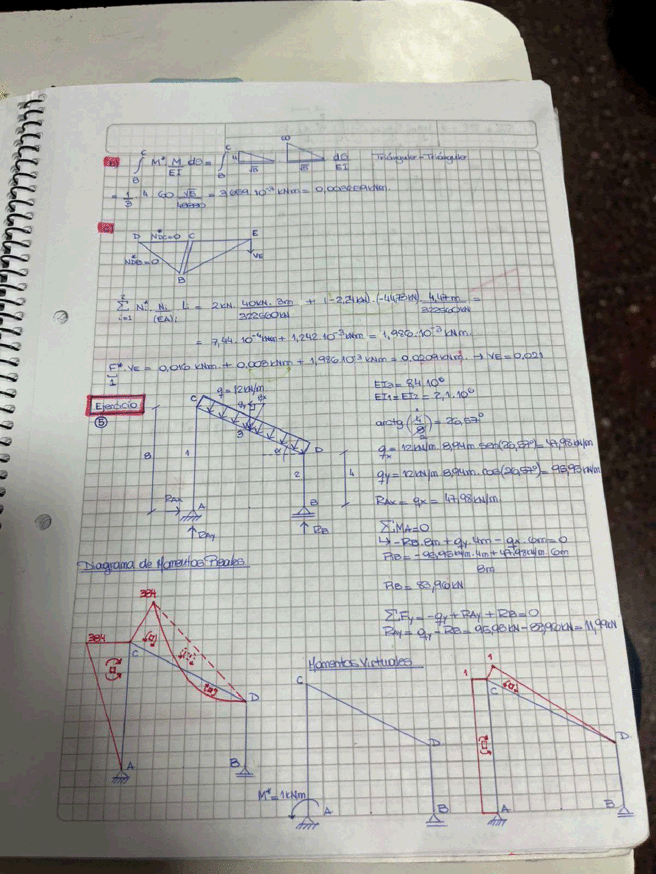 ∫ M* M/EI dθ = ∫ dθ/EI Triángulo - Triángulo
C C 60
B B 4 √5 √5
= 1/3 4 60 √5/48000 = 3,669.10⁻³ kNm = 0,003669 kNm.
D NDC=0 C E
NDB=0 VE
B
Σ N* Ni/(EA)i L = 2kN. 40kN. 3m/322560kN + (-2,24kN).(-44,73kN). 4,47m/322560kN =
= 7,44.10⁻⁴kNm + 1,242.10⁻³kNm = 1,986.10⁻³kNm.
F*.VE = 0,010 kNm. + 0,008kNm + 1,986.10⁻³kNm = 0,0209kNm. → VE = 0,021
1
Ejercicio
5
q = 12kN/m
C
qy qx
8
1
3
α
D
2
4
RAX
A
B
RAY
RB
EI3 = 84.10⁶
EI1 = EI2 = 2,1.10⁶
arctg (4/8) = 26,57°
qx = 12kN/m. 8,94m. sen(26,57°) = 47,98kN/m
qy = 12kN/m. 8,94m. cos(26,57°) = 95,95kN/m
RAX = qx = 47,98kN/m.
ΣMA=0
↳ -RB.8m + qy.4m - qx.6m = 0
RB = -95,95kN/m.4m + 47,98kN/m. 6m
8m
RB = 83,96kN
ΣFy = -qy + RAY + RB = 0
RAY = qy - RB = 95,95kN - 83,96kN = 11,99kN
Diagrama de Momentos Reales
384
384
C
D
A
B
Momentos Virtuales
C
D
M*=1kNm
A
B
1
1
C
D
A
B